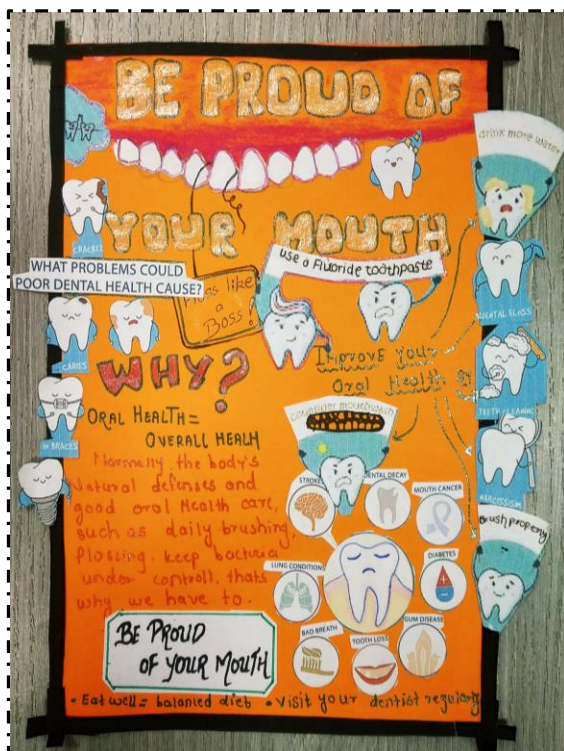 BE PROUD OF
YOUR MOUTH
drink more water
CRACKED
WHAT PROBLEMS COULD
POOR DENTAL HEALTH CAUSE?
Floss like
a
Boss!
use a Fluoride toothpaste
DENTAL FLOSS
CARIES
WHY?
IMPROVE YOUR
ORAL Health
TEETH CLEANING
ORAL HEALTH =
OVERALL HEALH
consider mouthwash
IN BRACES
NARCISSISM
Normally the body's
Natural defenses and
good oral Health care,
such as daily brushing,
flossing. keep bacteria
under controll. thats
why we have to.
STROKE
DENTAL DECAY
MOUTH CANCER
Brush properly
LUNG CONDITIONS
DIABETES
BAD BREATH
TOOTH LOSS
GUM DISEASE
BE PROUD
OF YOUR MOUTH
• Eat well = balanced diet • Visit your dentist regulary